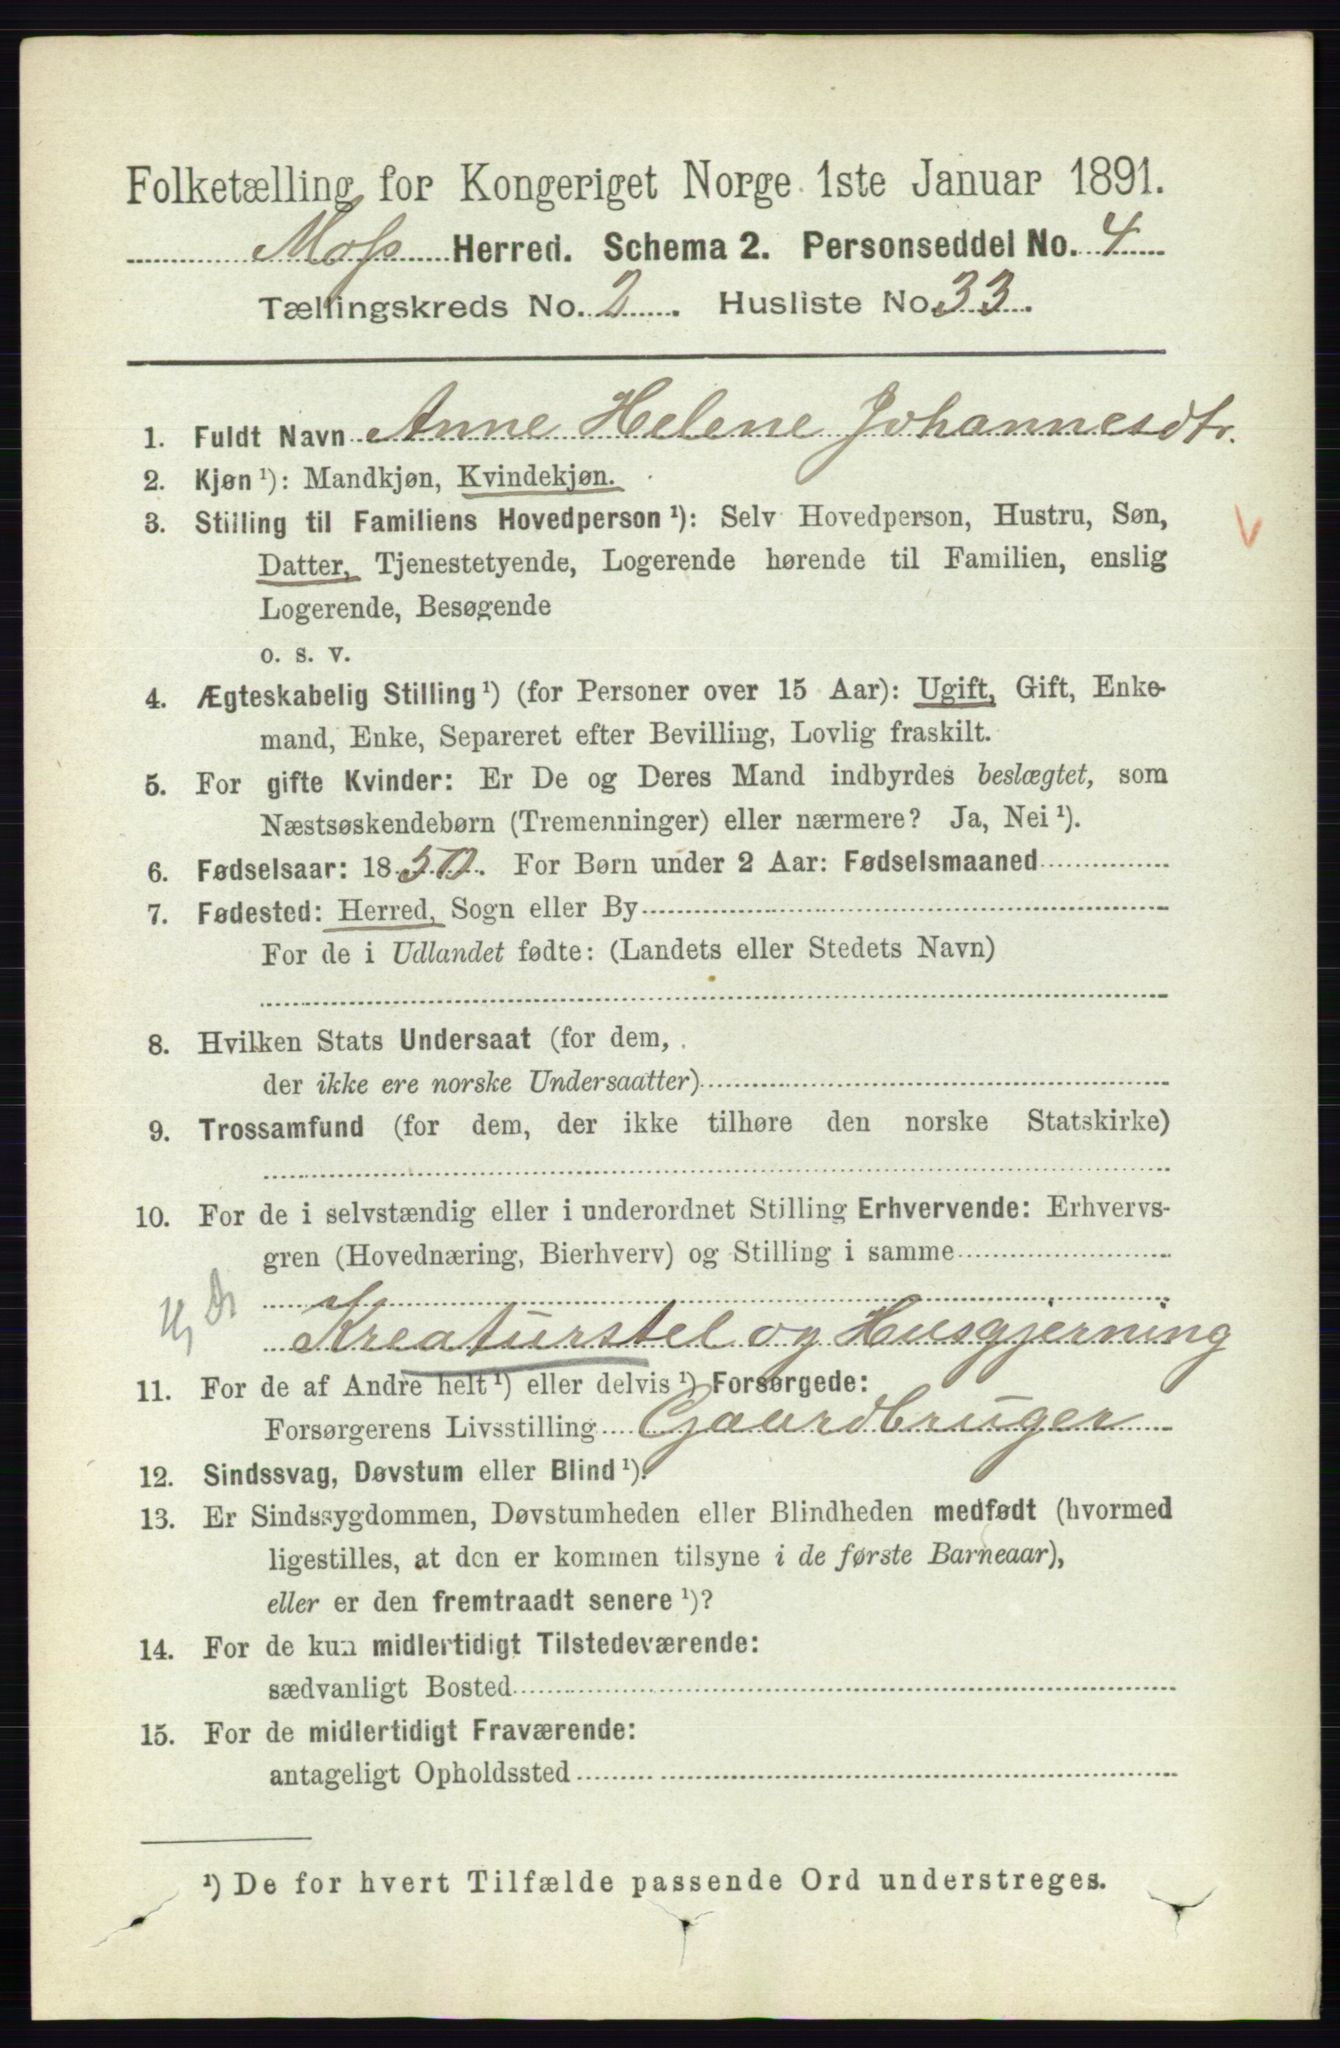 Folketælling for Kongeriget Norge 1ste Januar 1891.
Moss Herred. Schema 2. Personseddel No. 4
Tællingskreds No. 2. Husliste No. 33.
1. Fuldt Navn Anne Helene Johannesdtr.
2. Kjøn ¹): Mandkjøn, Kvindekjøn.
3. Stilling til Familiens Hovedperson ¹): Selv Hovedperson, Hustru, Søn,
Datter, Tjenestetyende, Logerende hørende til Familien, enslig
Logerende, Besøgende
o. s. v.
4. Ægteskabelig Stilling ¹) (for Personer over 15 Aar): Ugift, Gift, Enke-
mand, Enke, Separeret efter Bevilling, Lovlig fraskilt.
5. For gifte Kvinder: Er De og Deres Mand indbyrdes beslægtet, som
Næstsøskendebørn (Tremenninger) eller nærmere? Ja, Nei ¹).
6. Fødselsaar: 1850. For Børn under 2 Aar: Fødselsmaaned
7. Fødested: Herred, Sogn eller By
For de i Udlandet fødte: (Landets eller Stedets Navn)
8. Hvilken Stats Undersaat (for dem,
der ikke ere norske Undersaatter)
9. Trossamfund (for dem, der ikke tilhøre den norske Statskirke)
10. For de i selvstændig eller i underordnet Stilling Erhvervende: Erhvervs-
gren (Hovednæring, Bierhverv) og Stilling i samme
Kreaturstel og Husgjerning
11. For de af Andre helt ¹) eller delvis ¹) Forsørgede:
Forsørgerens Livsstilling Gaardbruger
12. Sindssvag, Døvstum eller Blind ¹).
13. Er Sindssygdommen, Døvstumheden eller Blindheden medfødt (hvormed
ligestilles, at den er kommen tilsyne i de første Barneaar),
eller er den fremtraadt senere ¹)?
14. For de kun midlertidigt Tilstedeværende:
sædvanligt Bosted
15. For de midlertidigt Fraværende:
antageligt Opholdssted
¹) De for hvert Tilfælde passende Ord understreges.